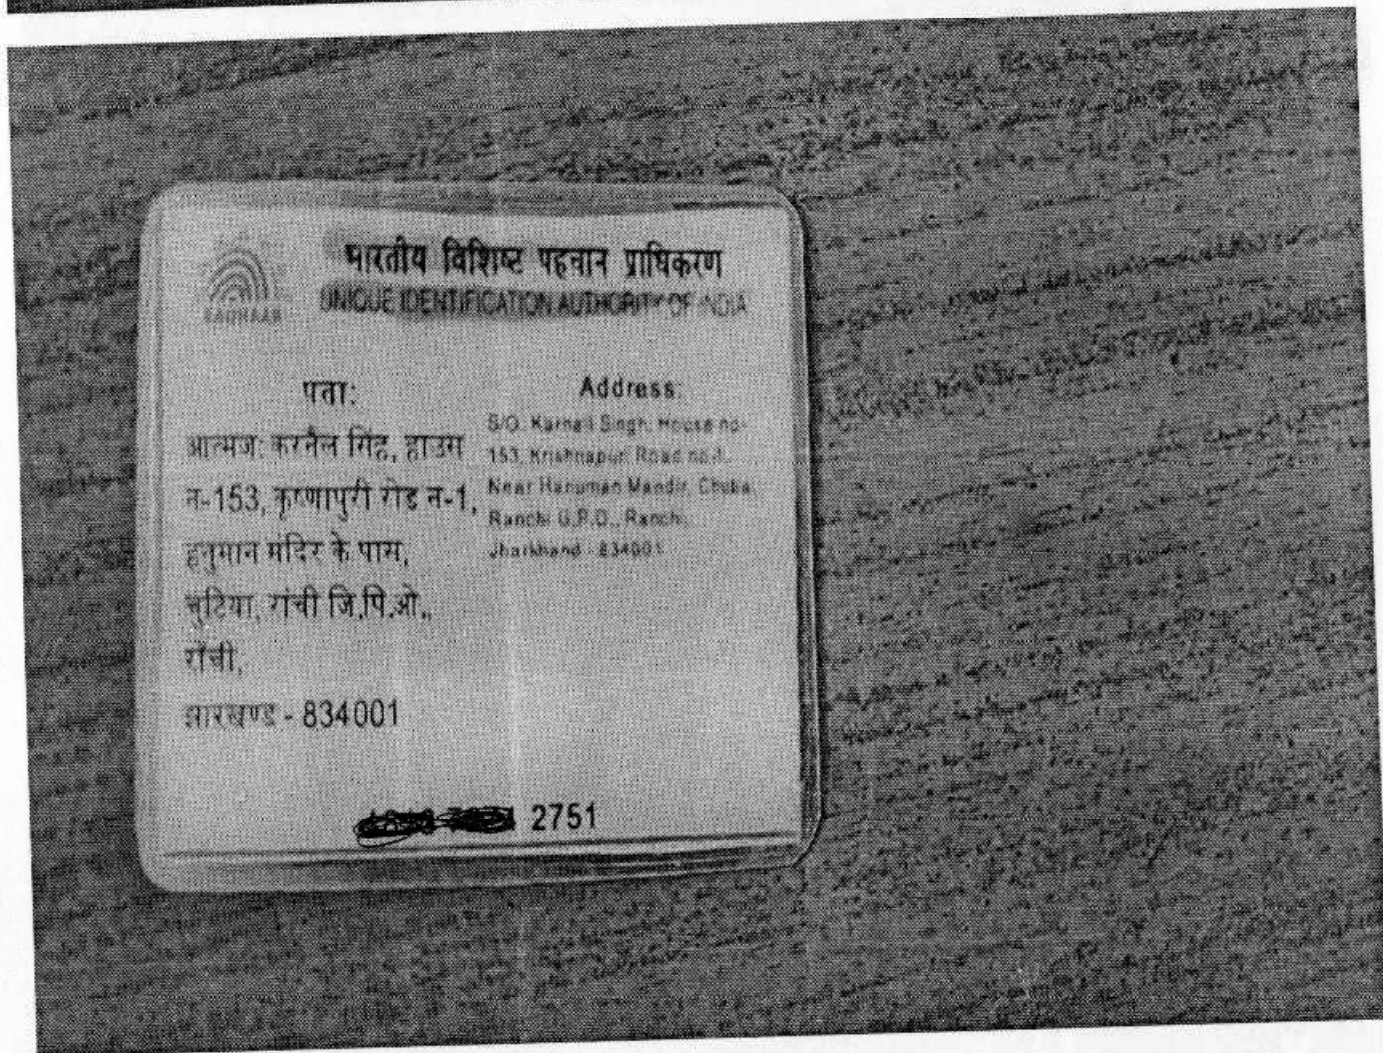 भारतीय विशिष्ट पहचान प्राधिकरण
UNIQUE IDENTIFICATION AUTHORITY OF INDIA
AADHAAR
पता:
आत्मज: करनैल सिंह, हाउस
न-153, कृष्णापुरी रोड न-1,
हनुमान मंदिर के पास,
चुटिया, रांची जि.पि.ओ.,
राँची,
झारखण्ड - 834001
Address:
S/O: Karnail Singh, House no-
153, Krishnapuri Road no.1,
Near Hanuman Mandir, Chutia,
Ranchi G.P.O., Ranchi,
Jharkhand - 834001
2751